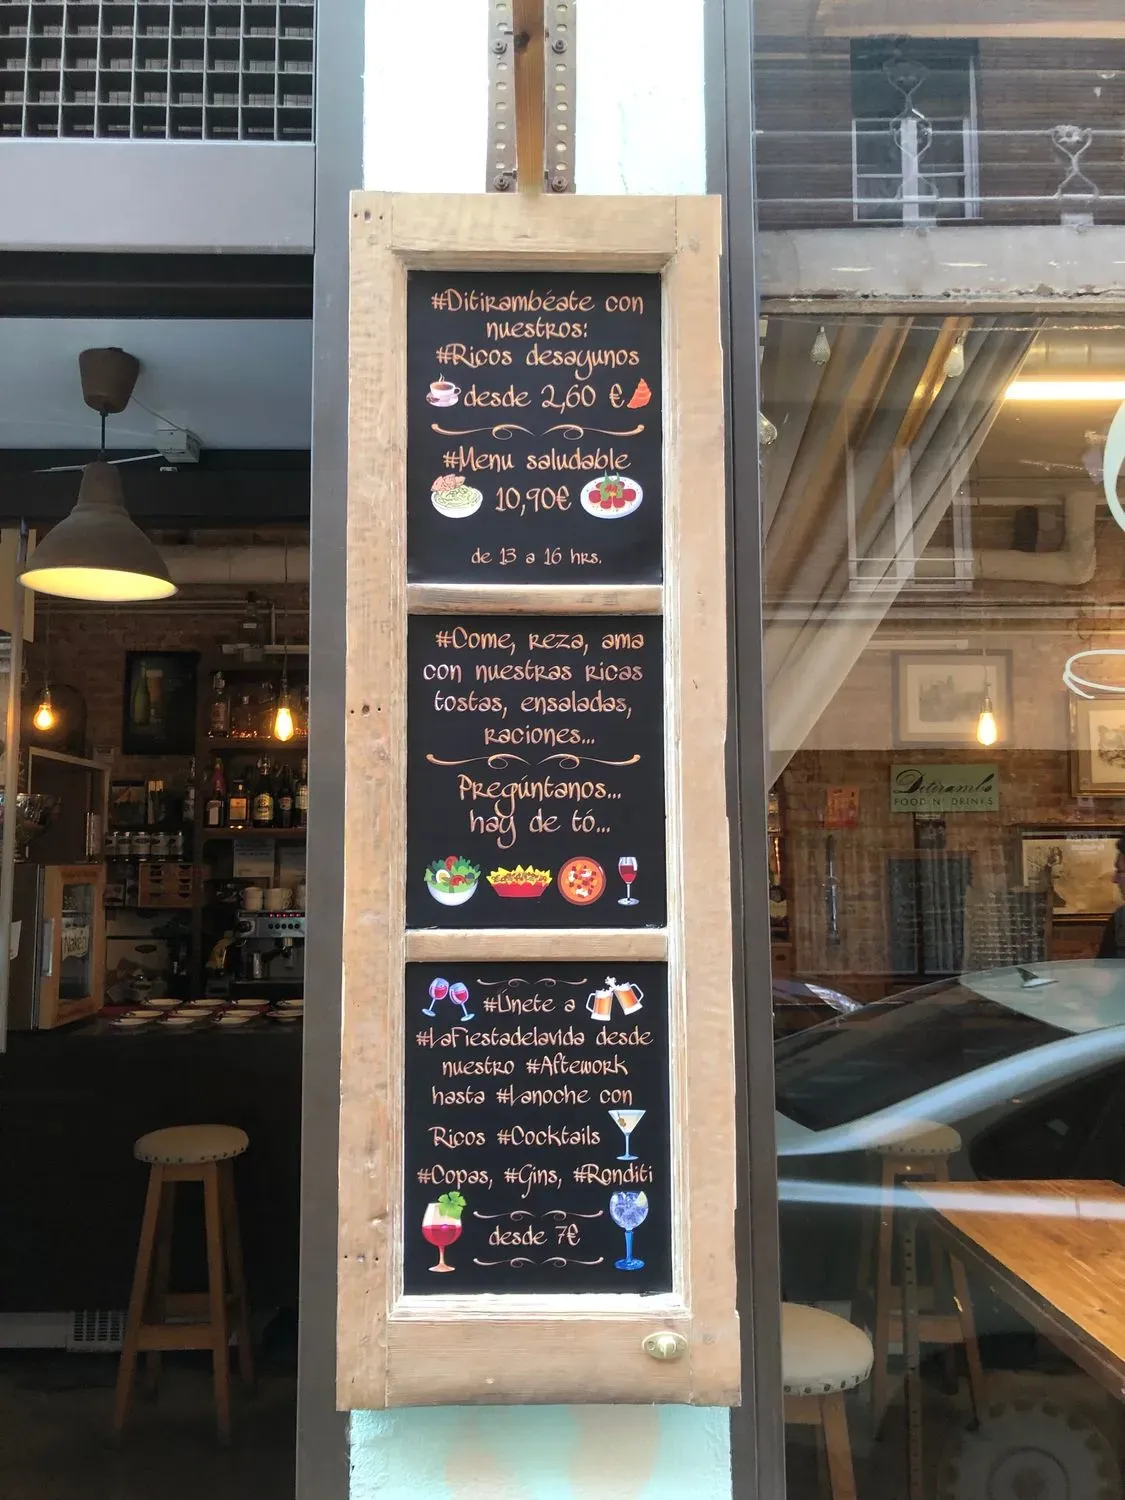 #Ditirambéate con
nuestros:
#Ricos desayunos
desde 2,60 €
#Menu saludable
10,90€
de 13 a 16 hrs.
#Come, reza, ama
con nuestras ricas
tostas, ensaladas,
raciones...
Pregúntanos...
hay de tó...
#Únete a
#LaFiestadelavida desde
nuestro #Aftework
hasta #Lanoche con
Ricos #Cocktails
#Copas, #Gins, #Ronditi
desde 7€
Ditirambo
FOOD N' DRINKS
Naked